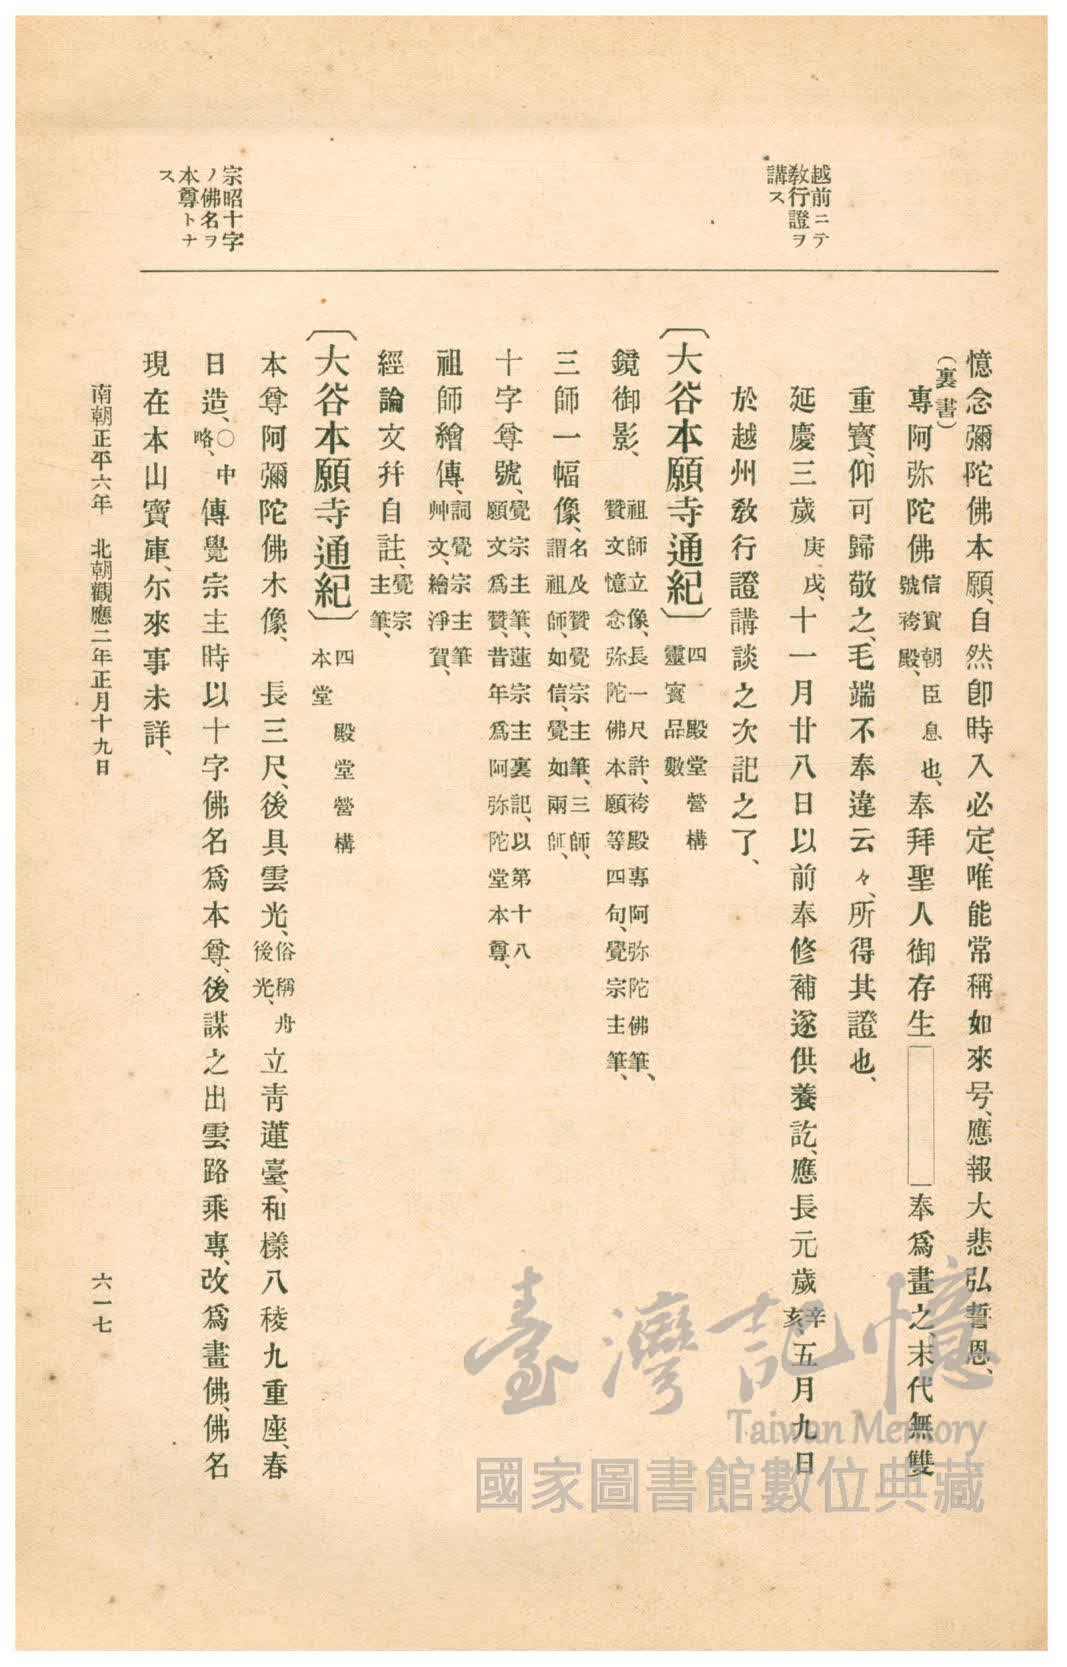 越前ニテ
教行證ヲ
講ス
宗昭十字
ノ佛名ヲ
本尊トナ
ス
憶念彌陀佛本願、自然卽時入必定、唯能常稱如來号、應報大悲弘誓恩、
(裏書)
專阿弥陀佛信實朝臣息也、號袴殿、奉拜聖人御存生 奉爲畫之、末代無雙
重寳、仰可歸敬之、毛端不奉違云々、所得其證也、
延慶三歲庚戌、十一月廿八日以前奉修補遂供養訖、應長元歲辛亥、五月九日
於越州教行證講談之次記之了、
〔大谷本願寺通紀〕四 殿堂營構 靈寳品數
鏡御影、祖師立像、長一尺許、袴殿專阿弥陀佛筆、贊文憶念弥陀佛本願等四句、覺宗主筆、
三師一幅像、名及贊覺宗主筆、三師、謂祖師、如信、覺如兩師、
十字尊號、覺宗主筆、蓮宗主裏記、以第十八願文爲贊、昔年爲阿弥陀堂本尊、
祖師繪傳、詞覺宗主筆艸文、繪淨賀、
經論文幷自註、覺宗主筆、
〔大谷本願寺通紀〕四 殿堂營構 本堂
本尊阿彌陀佛木像、 長三尺、後具雲光、俗稱舟後光、立靑蓮臺、和樣八稜九重座、春
日造、〇中略、傳覺宗主時以十字佛名爲本尊、後謀之出雲路乘專、改爲畫佛、佛名
現在本山寳庫、尓來事未詳、
南朝正平六年 北朝觀應二年正月十九日
六一七
臺灣記憶
Taiwan Memory
國家圖書館數位典藏